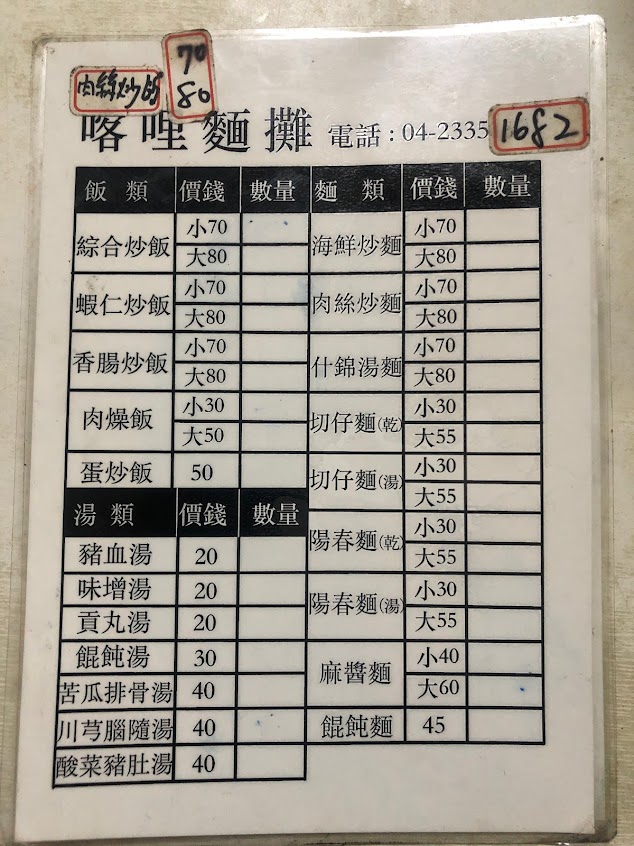 肉絲炒飯 70
80
喀哩麵攤 電話：04-2335 1682
飯類 價錢 數量 麵類 價錢 數量
綜合炒飯 小70 海鮮炒麵 小70
大80 大80
蝦仁炒飯 小70 肉絲炒麵 小70
大80 大80
香腸炒飯 小70 什錦湯麵 小70
大80 大80
肉燥飯 小30 切仔麵(乾) 小30
大50 大55
蛋炒飯 50 切仔麵(湯) 小30
湯類 價錢 數量 大55
豬血湯 20 陽春麵(乾) 小30
大55
味增湯 20 陽春麵(湯) 小30
貢丸湯 20 大55
餛飩湯 30 麻醬麵 小40
苦瓜排骨湯 40 大60
川芎腦隨湯 40 餛飩麵 45
酸菜豬肚湯 40